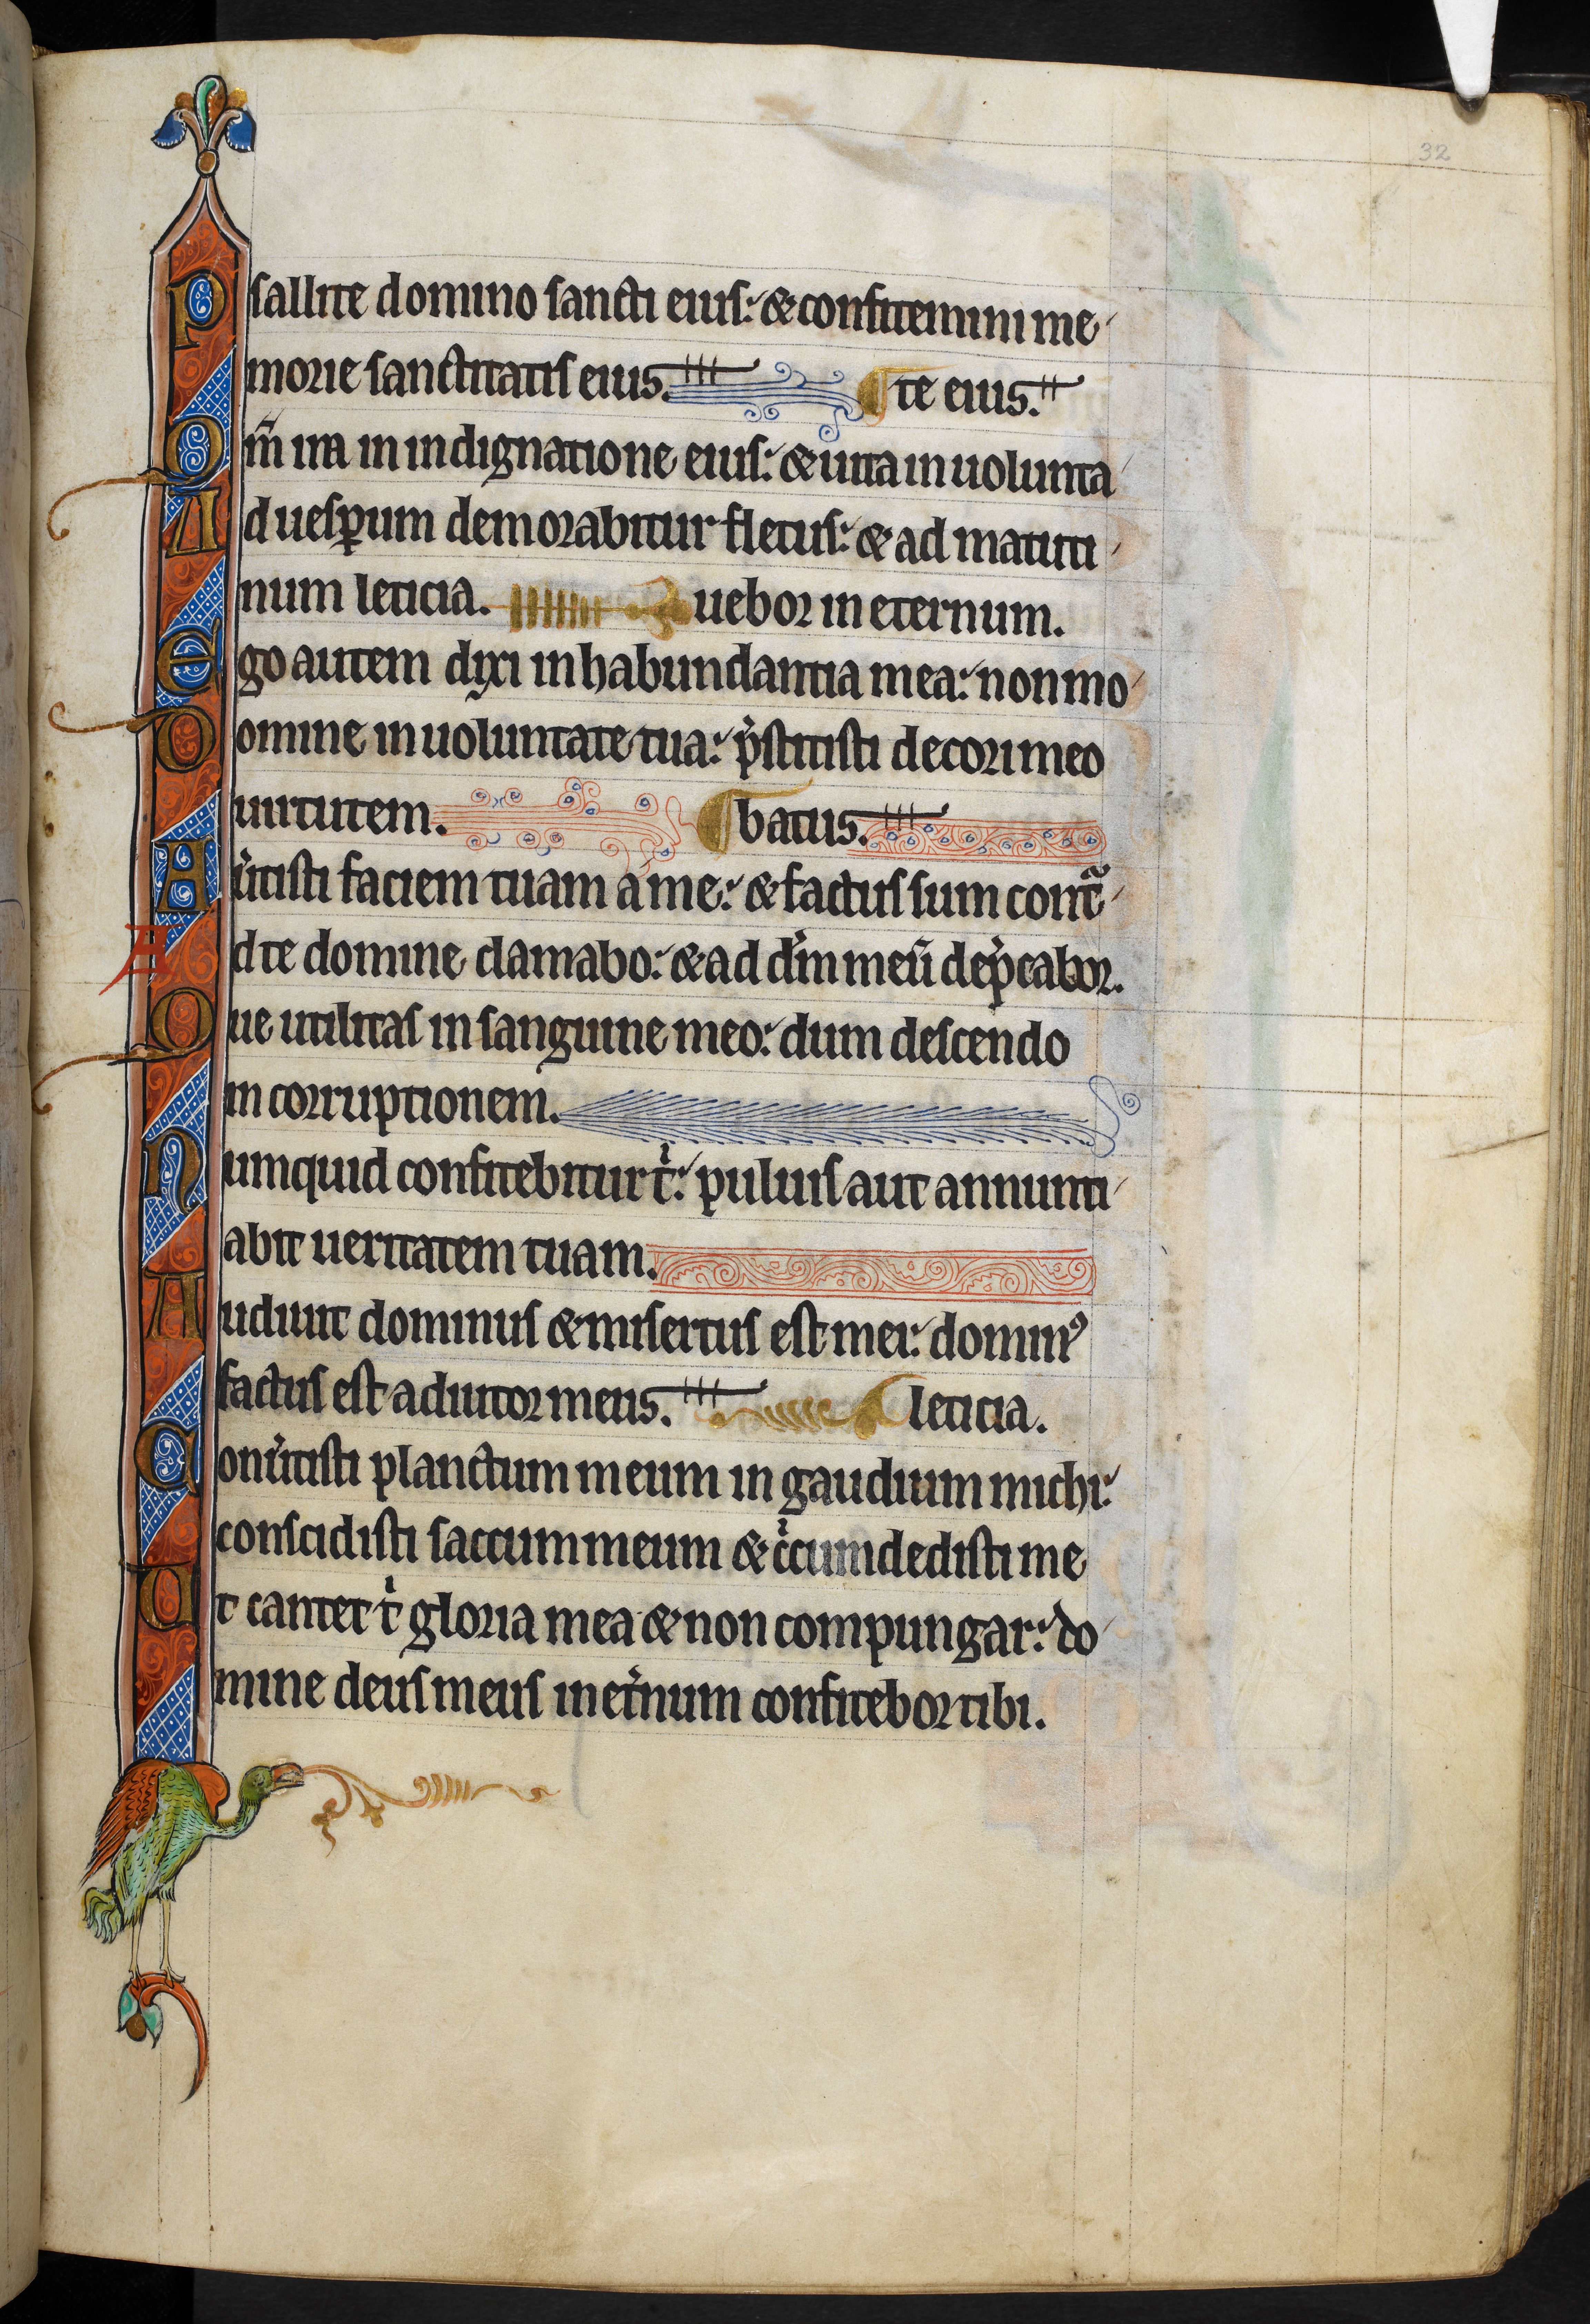 32
Psallite domino sancti eius: & confitemini me
morie sanctitatis eius. te eius.
Qm̄ ira in indignatione eius: & uita in uolunta
Ad uesꝑum demorabitur fletus: & ad matuti
num leticia. uebor in eternum.
Ego autem dixi in habundantia mea: non mo
Domine in uoluntate tua: p̍stitisti decori meo
uirtutem. batus.
Au̍tisti faciem tuam a me: & factus sum contᷓ
Ad te domine clamabo: & ad dm̍ meū dep̍cabor.
Que utilitas in sanguine meo: dum descendo
in corruptionem.
Numquid confitebitur t̍: puluis aut annunti
abit ueritatem tuam.
Audiuit dominus & misertus est mei: domin᾿
factus est adiutor meus. leticia.
Conu̍tisti planctum meum in gaudium michi:
conscidisti saccum meum & c̍cumdedisti me
Ut cantet t̍ gloria mea & non compungar: do
mine deus meus in et̍num confitebor tibi.